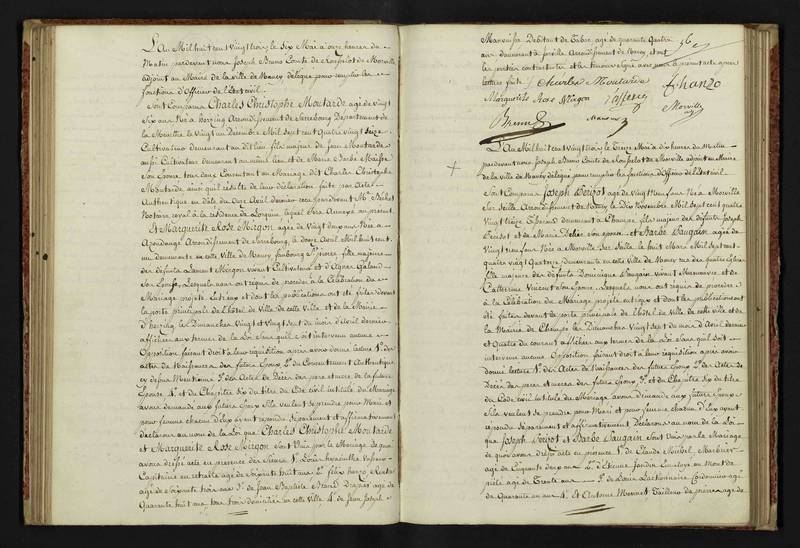 L'an Mil huit cent vingt trois, le Six Mai à onze heures du
Matin pardevant nous Joseph Bruno Comte de
adjoint au Maire de la ville de Nancy délégué pour remplir les
fonctions d'Officier de l'Etat civil.
Sont Comparus Charles Christophe Moutarde âgé de vingt
Six ans Né à Arrondissement de Sarrebourg Département de
la Meurthe le vingt un Décembre Mil Sept cent quatre vingt Seize
Cultivateur demeurant au dit lieu, fils majeur de Jean Moutarde
aussi Cultivateur demeurant au même lieu, et de Marie Barbe
Son Epouse tous deux Consentant au Mariage dit Charles Christophe
Moutarde ainsi qu'il résulte de leur déclaration faite par acte
Authentique en date du Onze Avril dernier reçu pardevant Me Michel
Notaire royal à la résidence de Lorquin lequel Sera Annexé au présent
Et Marguerite Rose Mirgon âgée de vingt deux ans Née à
Azoudange Arrondissement de Sarrebourg, le douze Avril Mil huit cent
un demeurante en cette Ville de Nancy faubourg St pierre, fille majeure
des défunts Laurent Mirgon vivant Cultivateur et d'Agnès Galand
Son Epouse, Lesquels nous ont requis de procéder à la Célébration du
Mariage projeté entre eux et dont les publications ont été faites devant
la porte principale de l'hôtel de Ville de cette Ville et de la Mairie
d' les Dimanches Vingt et Vingt sept du mois d'Avril dernier
affichées aux termes de la Loi Sans qu'il soit intervenu aucune
Opposition faisant droit à leur réquisition après avoir donné lecture 1° des
actes de Naissances des futurs Epoux 2° du Consentement Authentique
cy dessus Mentionné 3° des Actes de Décès des père et mère de la future
Epouse 4° et du Chapitre Six du titre du Code civil intitulé du Mariage
avons demandé aux futurs Epoux s'ils veulent se prendre pour Mari et
pour femme chacun d'eux ayant répondu Séparément et affirmativement
déclarons au nom de la Loi que Charles Christophe Moutarde
et Marguerite Rose Mirgon Sont Unis par le Mariage de quoi
avons dressé acte en présence des Sieurs 1° Louis hyacinthe
Capitaine en retraite âgé de Soixante huit ans 2° félix hanzo, Rentier
âgé de Soixante trois ans 3° de Jean Baptiste Drapier âgé de
Quarante huit ans, tous trois domiciliés en cette Ville 4° de Jean Joseph
Débitant de Tabac, âgé de quarante Quatre
ans demeurant à Arrondissement de Nancy, et ont
les parties contractantes et les témoins signé avec nous le présent acte après
lecture faite. Charles Moutarde f hanzo
Marguerite Rose Mirgon
Morville
L'An Mil huit cent Vingt trois, le Treize Mai à dix heures du Matin
pardevant nous Joseph Bruno Comte de Morville adjoint au Maire
de la Ville de Nancy délégué pour remplir les fonctions d'Officier de l'Etat civil.
Sont Comparus Joseph Perizot âgé de Vingt Neuf ans Né à Morville
Sur Seille Arrondissement de Nancy le Dix Novembre Mil Sept cent quatre
Vingt treize demeurant à Champey fils majeur des défunts Joseph
Perizot et de Marie Son épouse et Barbe Daugain âgée de
Vingt neuf ans Née à Morville Sur Seille le huit Mars Mil Sept cent
quatre vingt Quatorze demeurante en cette Ville de Nancy rue des quatre Eglises
fille majeure des défunts Dominique Daugain vivant Manœuvre et de
Catherine Vincent Son Epouse, Lesquels nous ont requis de procéder
à la Célébration du Mariage projeté entre eux et dont les publications ont
été faites devant la porte principale de l'hôtel de Ville de cette Ville et de
la Mairie de Champey les Dimanches Vingt Sept du mois d'Avril dernier
et Quatre du courant affichées aux termes de la Loi Sans qu'il Soit
intervenu aucune Opposition faisant droit à leur réquisition après avoir
donné lecture 1° des actes de Naissances des futurs Epoux 2° des actes de
Décès des pères et mères des futurs Epoux 3° et du Chapitre Six du titre
du Code civil intitulé du Mariage avons demandé aux futurs Epoux
s'ils veulent Se prendre pour Mari et pour femme chacun d'eux ayant
répondu Séparément et affirmativement Déclarons au nom de la Loi
que Joseph Perizot et Barbe Daugain Sont Unis par le Mariage,
de quoi avons dressé acte en présence 1° de Claude Marbrier
âgé de Cinquante deux ans 2° d'Etienne Employé au Mont de
piété âgé de Trente ans 3° de Louis Cordonnier âgé
de Quarante un ans 4° et Antoine Monnet Tailleur de pierre âgé de